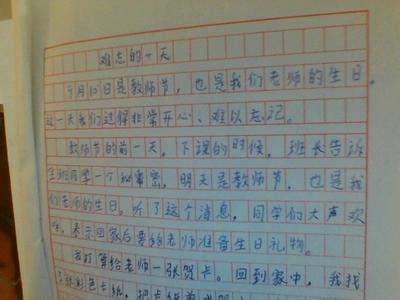 难忘的一天
9月10日是教师节，也是我们老师的生日。
这一天我们过得非常开心、难以忘记。
教师节的前一天，下课的时候，班长告诉
全班同学一个秘密，明天是教师节，也是我
们老师的生日。听了这个消息，同学们大声欢
呼，表示回家后要给老师准备生日礼物。
我打算给老师一张贺卡。回到家中，我找
了张彩色卡纸，把卡纸